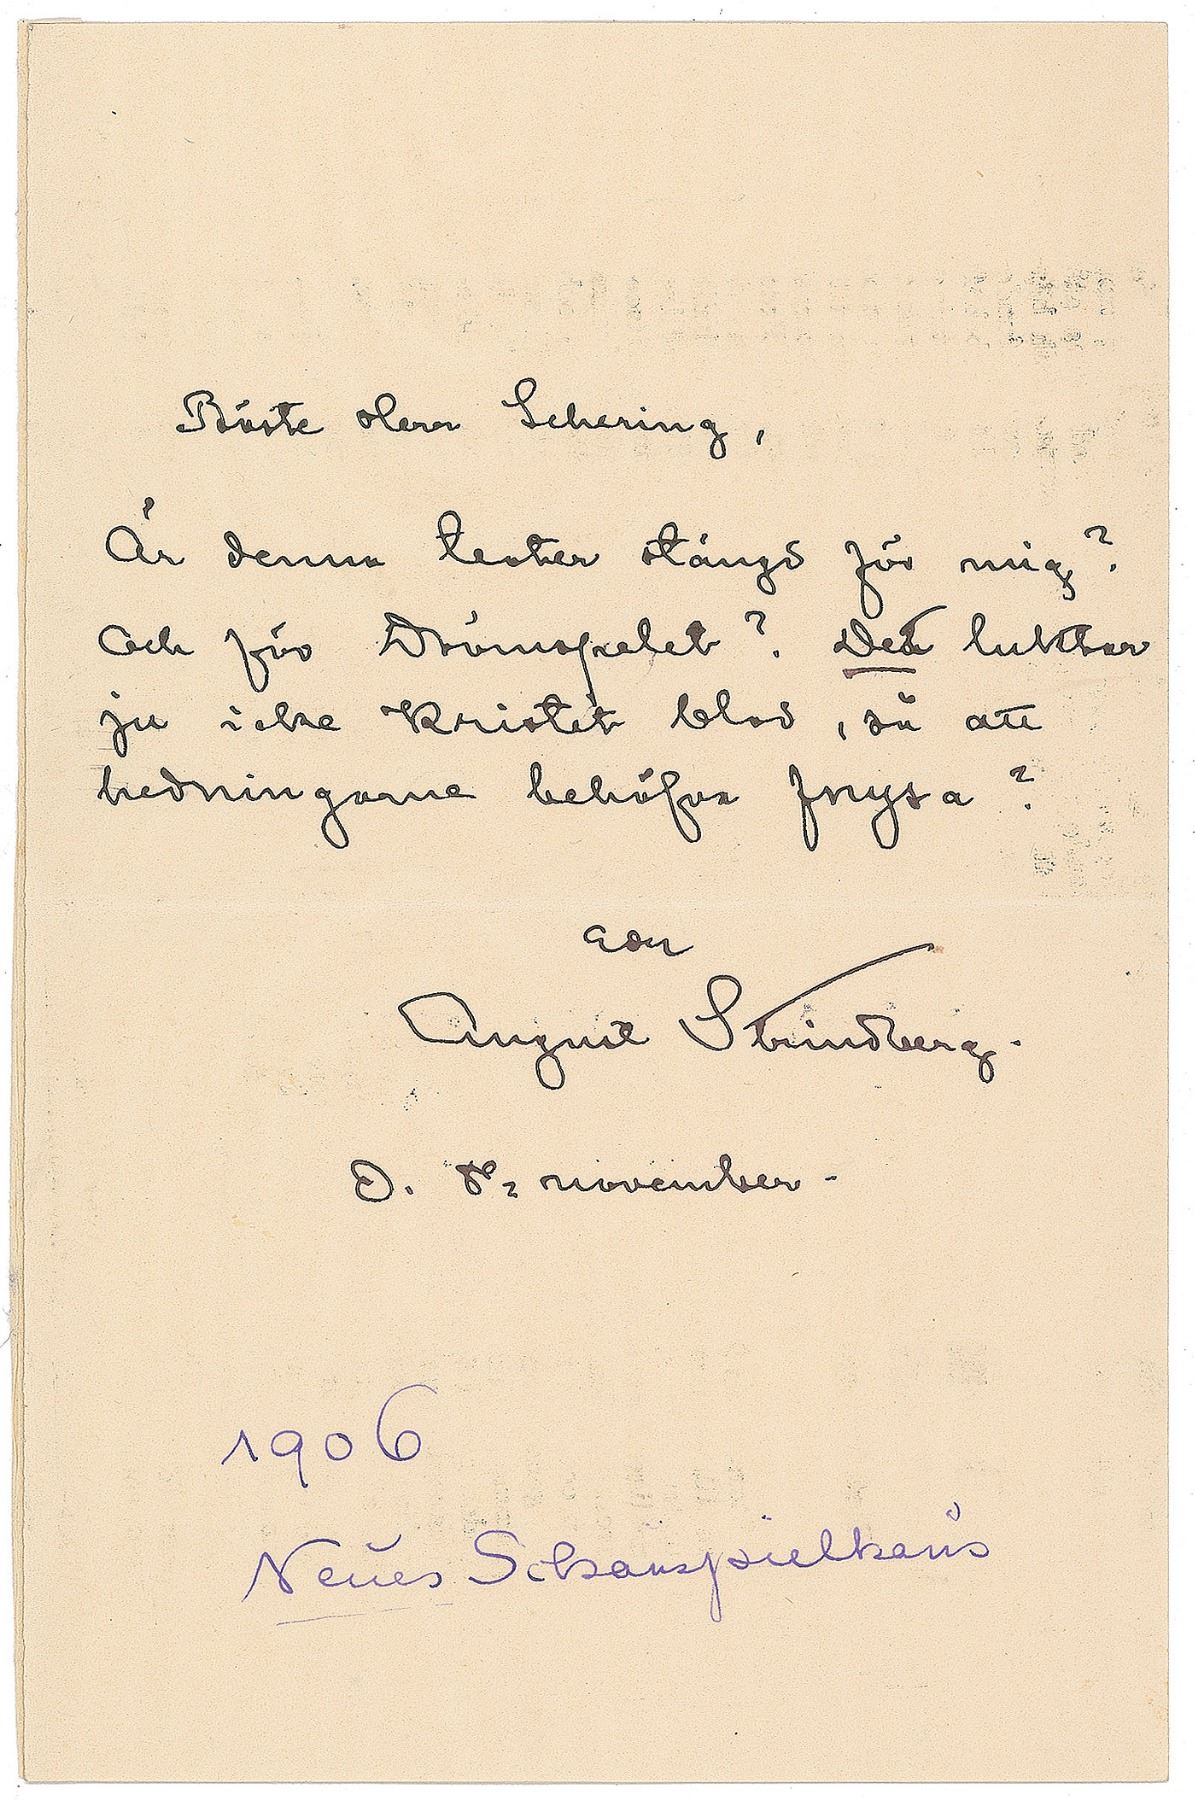 Bäste Herr Schering,
Är denna teater stängd för mig?
Och för Drömspelet? Det luktar
ju icke kristet blod, så att
hedningarne behöfva fnysa?
Edn
August Strindberg.
D. 8 november.
1906
Neues Schauspielhaus